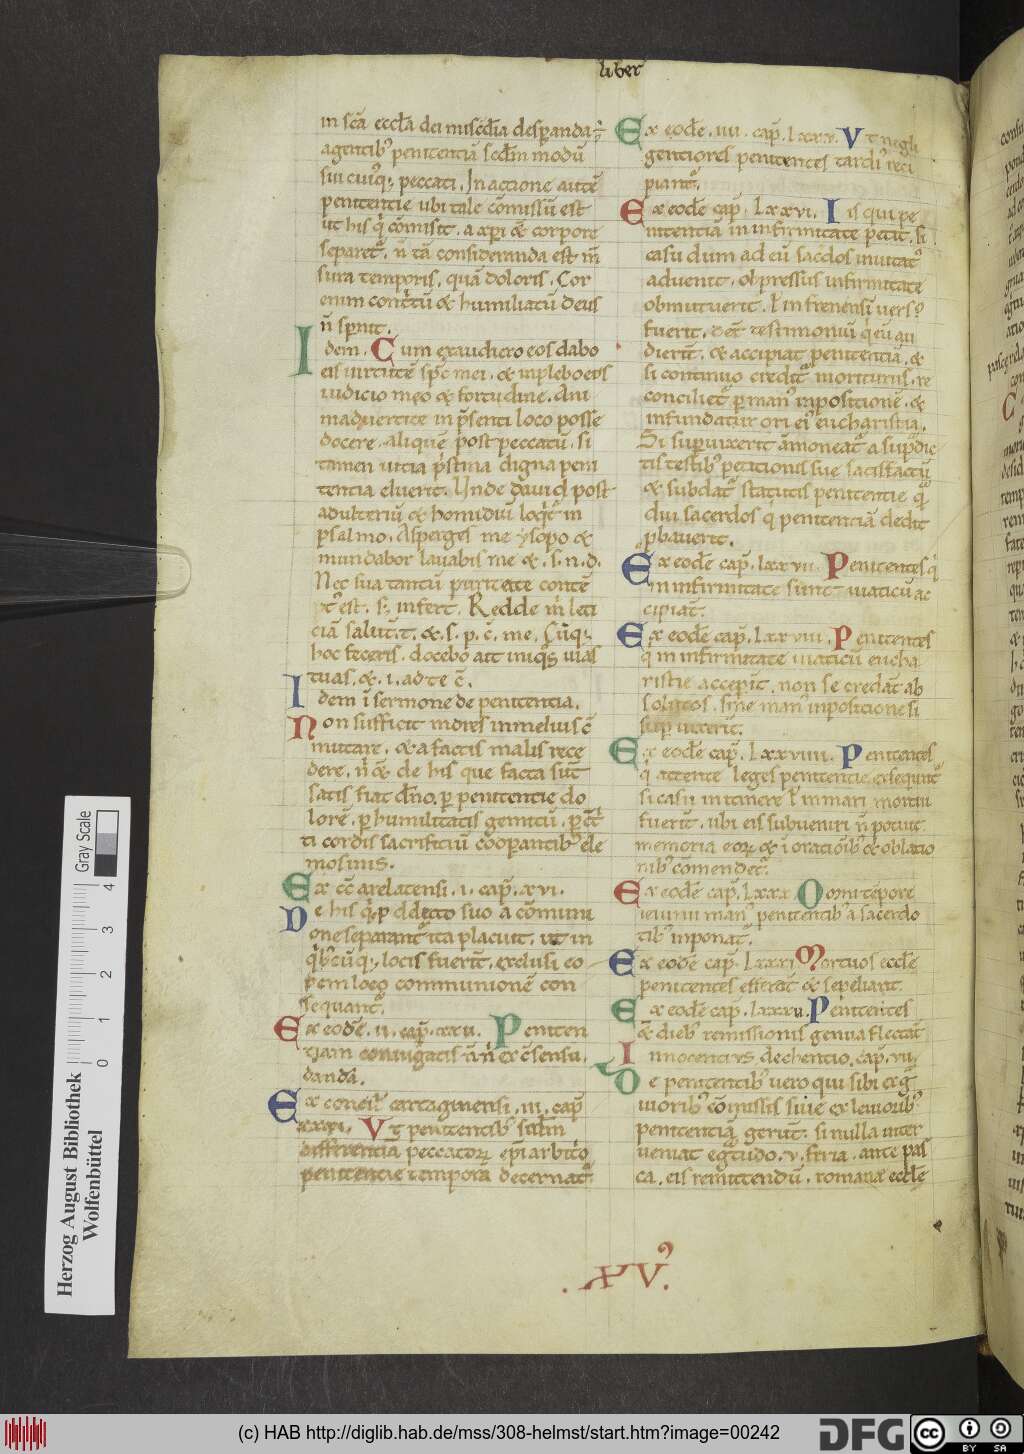 liber
in scā eccl̄a dei misc̄dia desꝑanda· ē
agentibꝰ penitentiā scd̄m modū
sui cuiꝰq; peccati. In actione autē
penitentie ubi tale cōmissū est
ut his q̇ cōmisit. a xp̄i & corpore
separetᷣ. n̄ tā consideranda est m̄
sura temporis. quā doloris. Cor
enim cont̄tū & humiliatū deus
n̄ sp̄nit.
Idem. Cum exaudiero eos dabo
eis virtutē sp̄c mei. & inplebo eos
iudicio meo & fortitudine. Ani
maduertite in p̄senti loco posse
docere. aliquē post peccatū. si
tamen uitia p̄stina digna peni
tentia eluerit. Unde dauid post
adulteriū & homidiū loq̇tᷣ in
psalmo. Asperges me ysopo &
mundabor lauabis me &. s. n. d.
Nec sua tantū puritate contē
tꝰ est. s; infert. Redde m̄ leti
ciā salut̄. t. &. s. p. c̄. me. Cūq;
hoc feceris. docebo ait iniq̄s uias
tuas. &. i. ad te c̄.
Idem ī sermone de penitentia.
Non sufficit mores in melius c̄
mutare. & a factis malis rece
dere. n̄ & de his que facta sūt
satis fiat d̄no. ꝑ penitentie do
lorē. ꝑ humilitatis gemitū. ꝑ c̄t
ti cordis sacrificiū cooꝑantibꝰ ele
mosinis.
Ex c̄c arelatensi. i. cap̄. xvi.
De his q̇
one separantᷣ ita placuit. ut in
q̇bꝰcūq; locis fuerit̄. exclusi eo
dem loco communionē con
sequantᷣ.
Ex eodē. ii. cap̄. xxii. Peniten
tiam coniugatis n̄ n̄ ex c̄sensu.
dandā.
Ex concilᷣ cartaginensi. iii. cap̄
xxxi. Ut penitentibꝰ scd̄m
differentiā peccatoꝝ ep̄i arbit̄o
penitentie tempora decernatᷣ.
Ex eodē. iiii. cap̄. lxxx. Ut negli
gentiores penitentes tardiꝰ reci
piantᷣ.
Ex eodē cap̄. lxxvi. Is qui pe
nitentiā in infirmitate petit. si
casu dum ad eū sac̄dos inuitatꝰ
aduenit. obpressus infirmitate
obmutuerit. ł in frenensī uersꝰ
fuerit. det̄ testimoniū q̇ eū au
dierūt. & accipiat penitentiā. &
si continuo creditᷣ moriturus. re
concilietᷣ ꝑ manꝰ inpositionē. &
infundatur ori eiꝰ eucharistia.
Si suꝑuixerit āmoneatᷣ a sup̄dic
tis testibꝰ petitionis sue satisfactū
& subdatᷣ statutis penitentie q̄m
diu sacerdos q̇ penitentiā dedit
ꝓbauerit.
Ex eodē cap̄. lxxvii. Penitentes q̇
in infirmitate sunt uiaticū ac
cipiāt.
Ex eodē cap̄. lxxviii. Penitentes
q̇ in infirmitate uiaticū eucha
ristie accep̄īt. non se credāt ab
solutos. sine manꝰ inpositione si
suꝑ uixerīt.
Ex eodē cap̄. lxxviiii. Penitentes
q̇ attente leges penitentie exsequntᷣ
si casu in itinere ł in mari mortui
fuerīt. ubi eis subueniri n̄ potuit.
memoria eoꝝ & ī oratiōibꝰ & oblatio
nibꝰ cōmendetᷣ.
Ex eodē cap̄. lxxx. Oōmi tēpore
ieiunii manꝰ penitentibꝰ a sacerdo
tibꝰ inponatᷣ.
Ex eodē cap̄. lxxxi. Mortuos eccłē
penitentes efferāt & sepeliant.
Ex eodē cap̄. lxxxii. Penitentes
& diebꝰ remissionis genua flectāt
Innocentius dechentio. cap̄. vii.
De penitentibꝰ uero qui sibi ex g̃
uioribꝰ cōmissis siue ex leuiorībꝰ
penitentiā gerūt. si nulla inter
ueniat egᷓtudo. v. feria. ante pas
ca. eis remittendū. romanæ eccłē
. XVꝰ.
Herzog August Bibliothek
Wolfenbüttel
0 1 2 3 4
Gray Scale
(c) HAB http://diglib.hab.de/mss/308-helmst/start.htm?image=00242
DFG
cc
BY SA